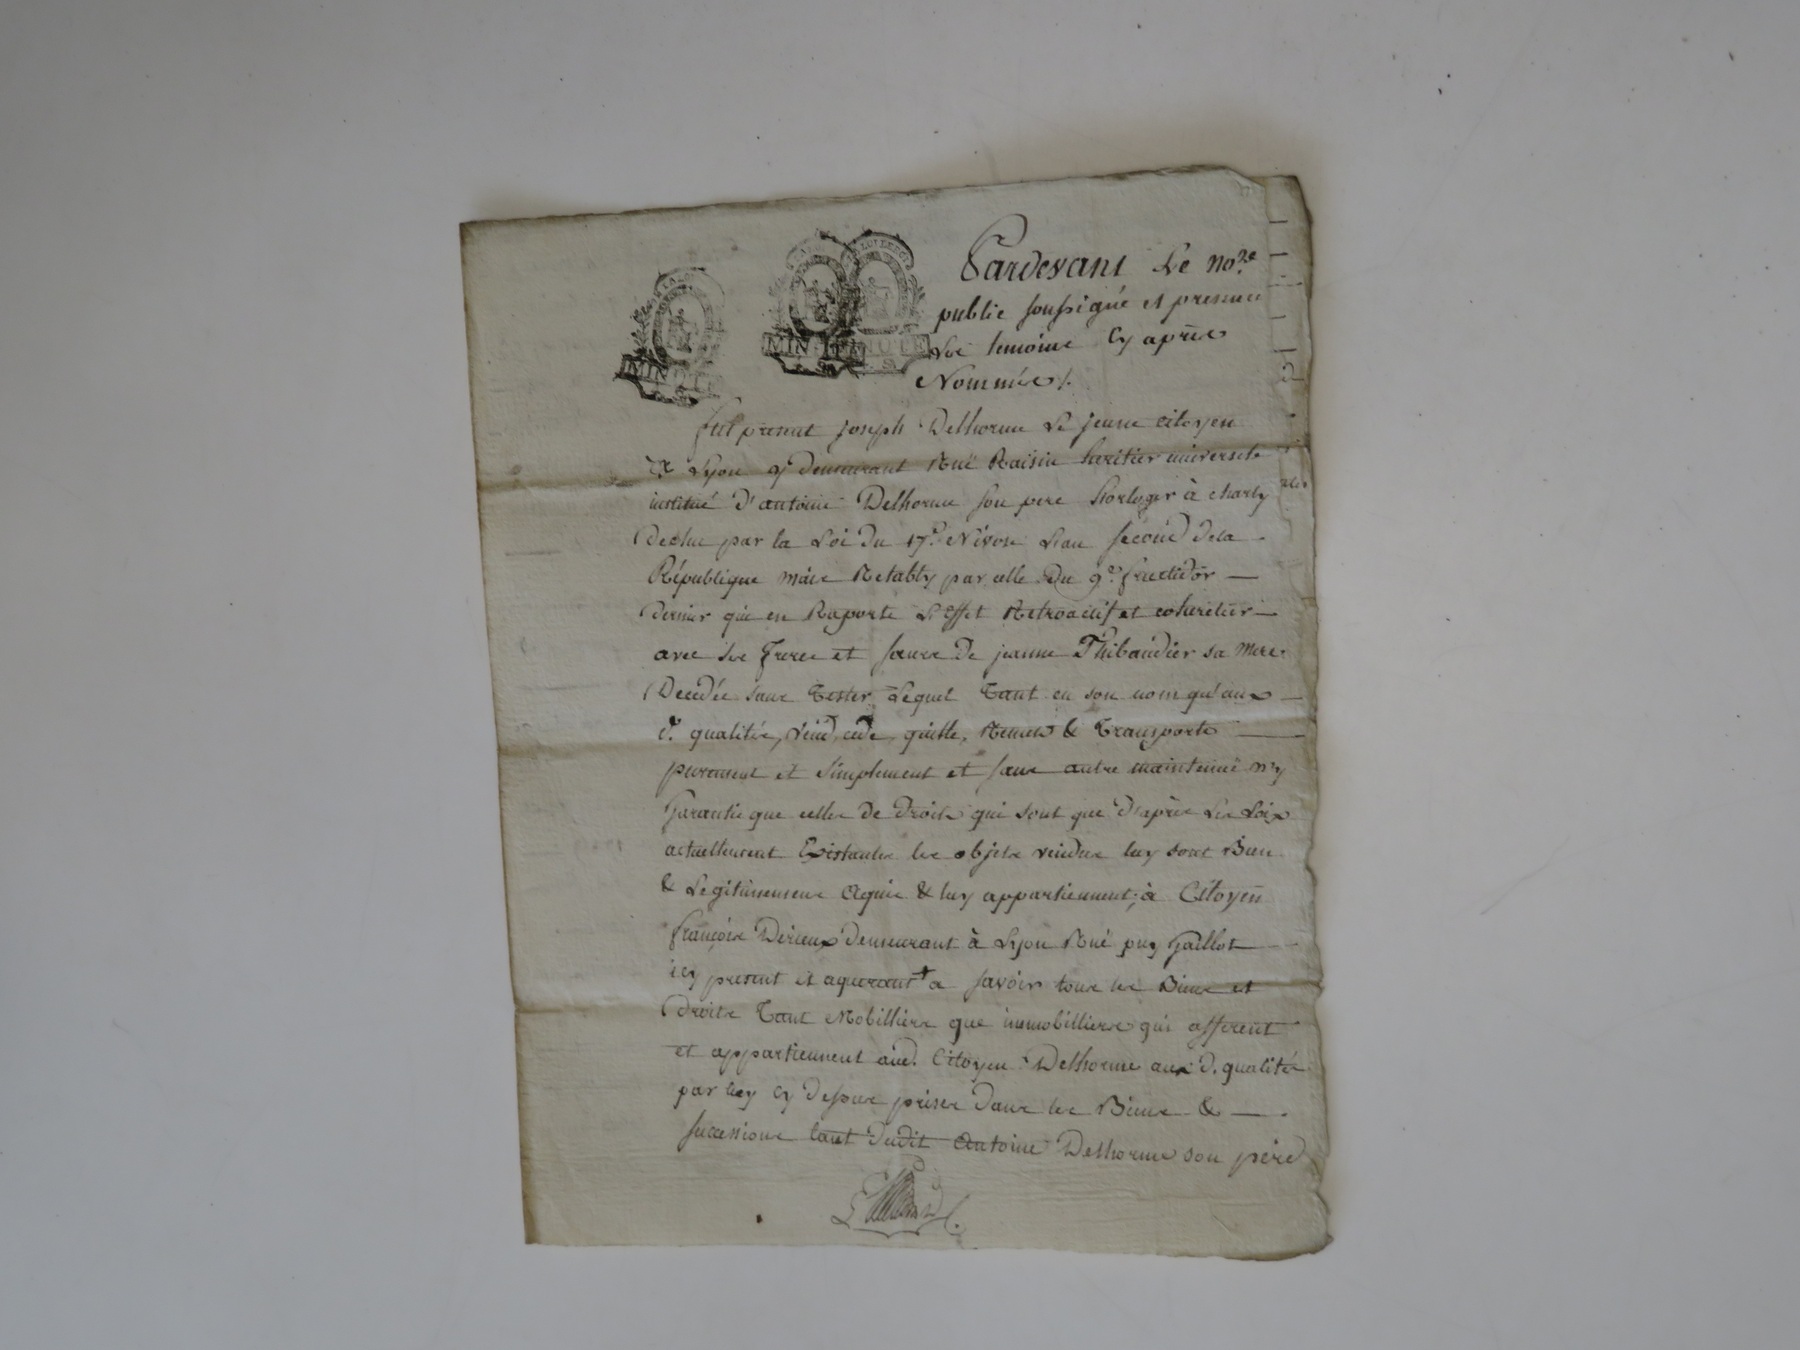 MINUTE
MINUTE
MINUTE
Pardevant Le no.re
public soussigné et presence
des temoins cy après
Nommés /.
fut present joseph Delhorme Le jeune citoyen
de Lyon y demeurant Rué Raisin haritier universele
institué d'antoine Delhorme son pere horloger à charly
dechu par la Loi du 17.e Nivose Lan second dela
République mais Retably par celle du 9.e fructidor —
dernier qui en Raporte L'effet Retroactif et coheritier —
avec ses freres et sœurs de jeanne Thibaudier sa mere
Decedée sans Tester Lequel Tant en son nom qu'aux —
d. qualités, vend, cede, quitte, Remet & Transporte —
purement et simplement et sans autre maintenue ny
Garantie que celles de droits qui sont que d'après Les Loix
actuellement Existantes les objets vendus luy sont Bien
& Legitimement Aquis & luy appartiennent, à Citoyen
françois Derieux demeurant à Lyon Rué puy Gaillot —
icy present et aquerant + a savoir tous les Biens et
Droits Tant Mobilliers que immobilliers qui afferent
et appartiennent aud. Citoyen Delhorme aux d. qualités
par luy cy dessus prises dans les Biens & —
successions tant dudit Antoine Delhorme son père